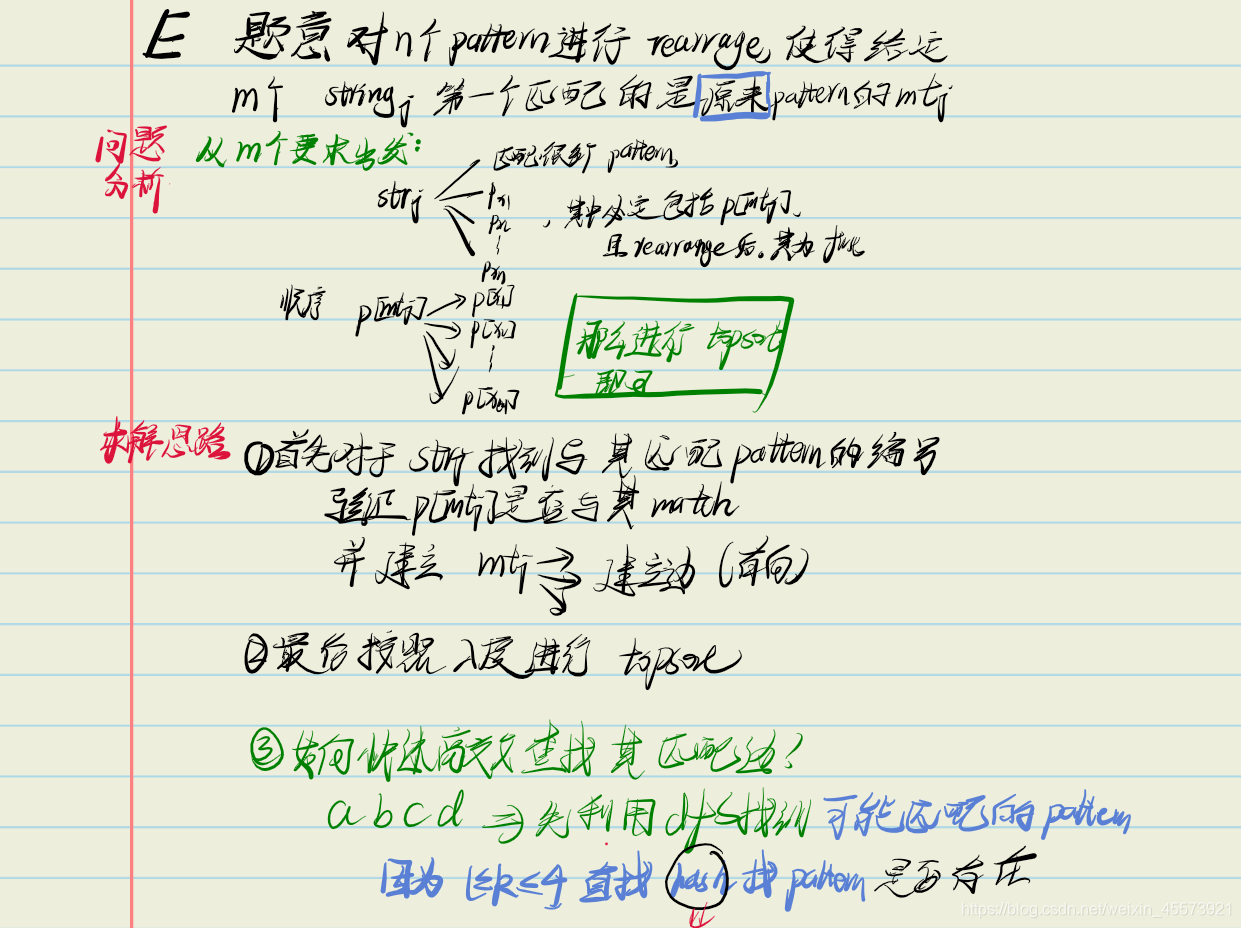 E 题意 对n个pattern进行 rearrage, 使得给定
m个 stringj 第一个匹配的是原来pattern的mtj
问题
分析
从m个要求出发:
匹配很多 pattern,
strj
Px1
Px2
Pxn
, 其中必定包括p[mtj],
且rearrange后,其为
顺序 p[mtj]
p[x1]
p[x2]
p[xn]
那么进行 topsort
即可
求解思路
①首先对于 strj 找到与其匹配pattern的编号
验证p[mtj]是否与其match
并建立 mtj 建立边(有向)
②最后按照入度进行 topsort
③如何快速高效查找其匹配边?
abcd ⇒ 先利用dfs找到可能匹配的pattern
因为 1≤k≤4 直找 hash 找 pattern 是否存在
https://blog.csdn.net/weixin_45573921